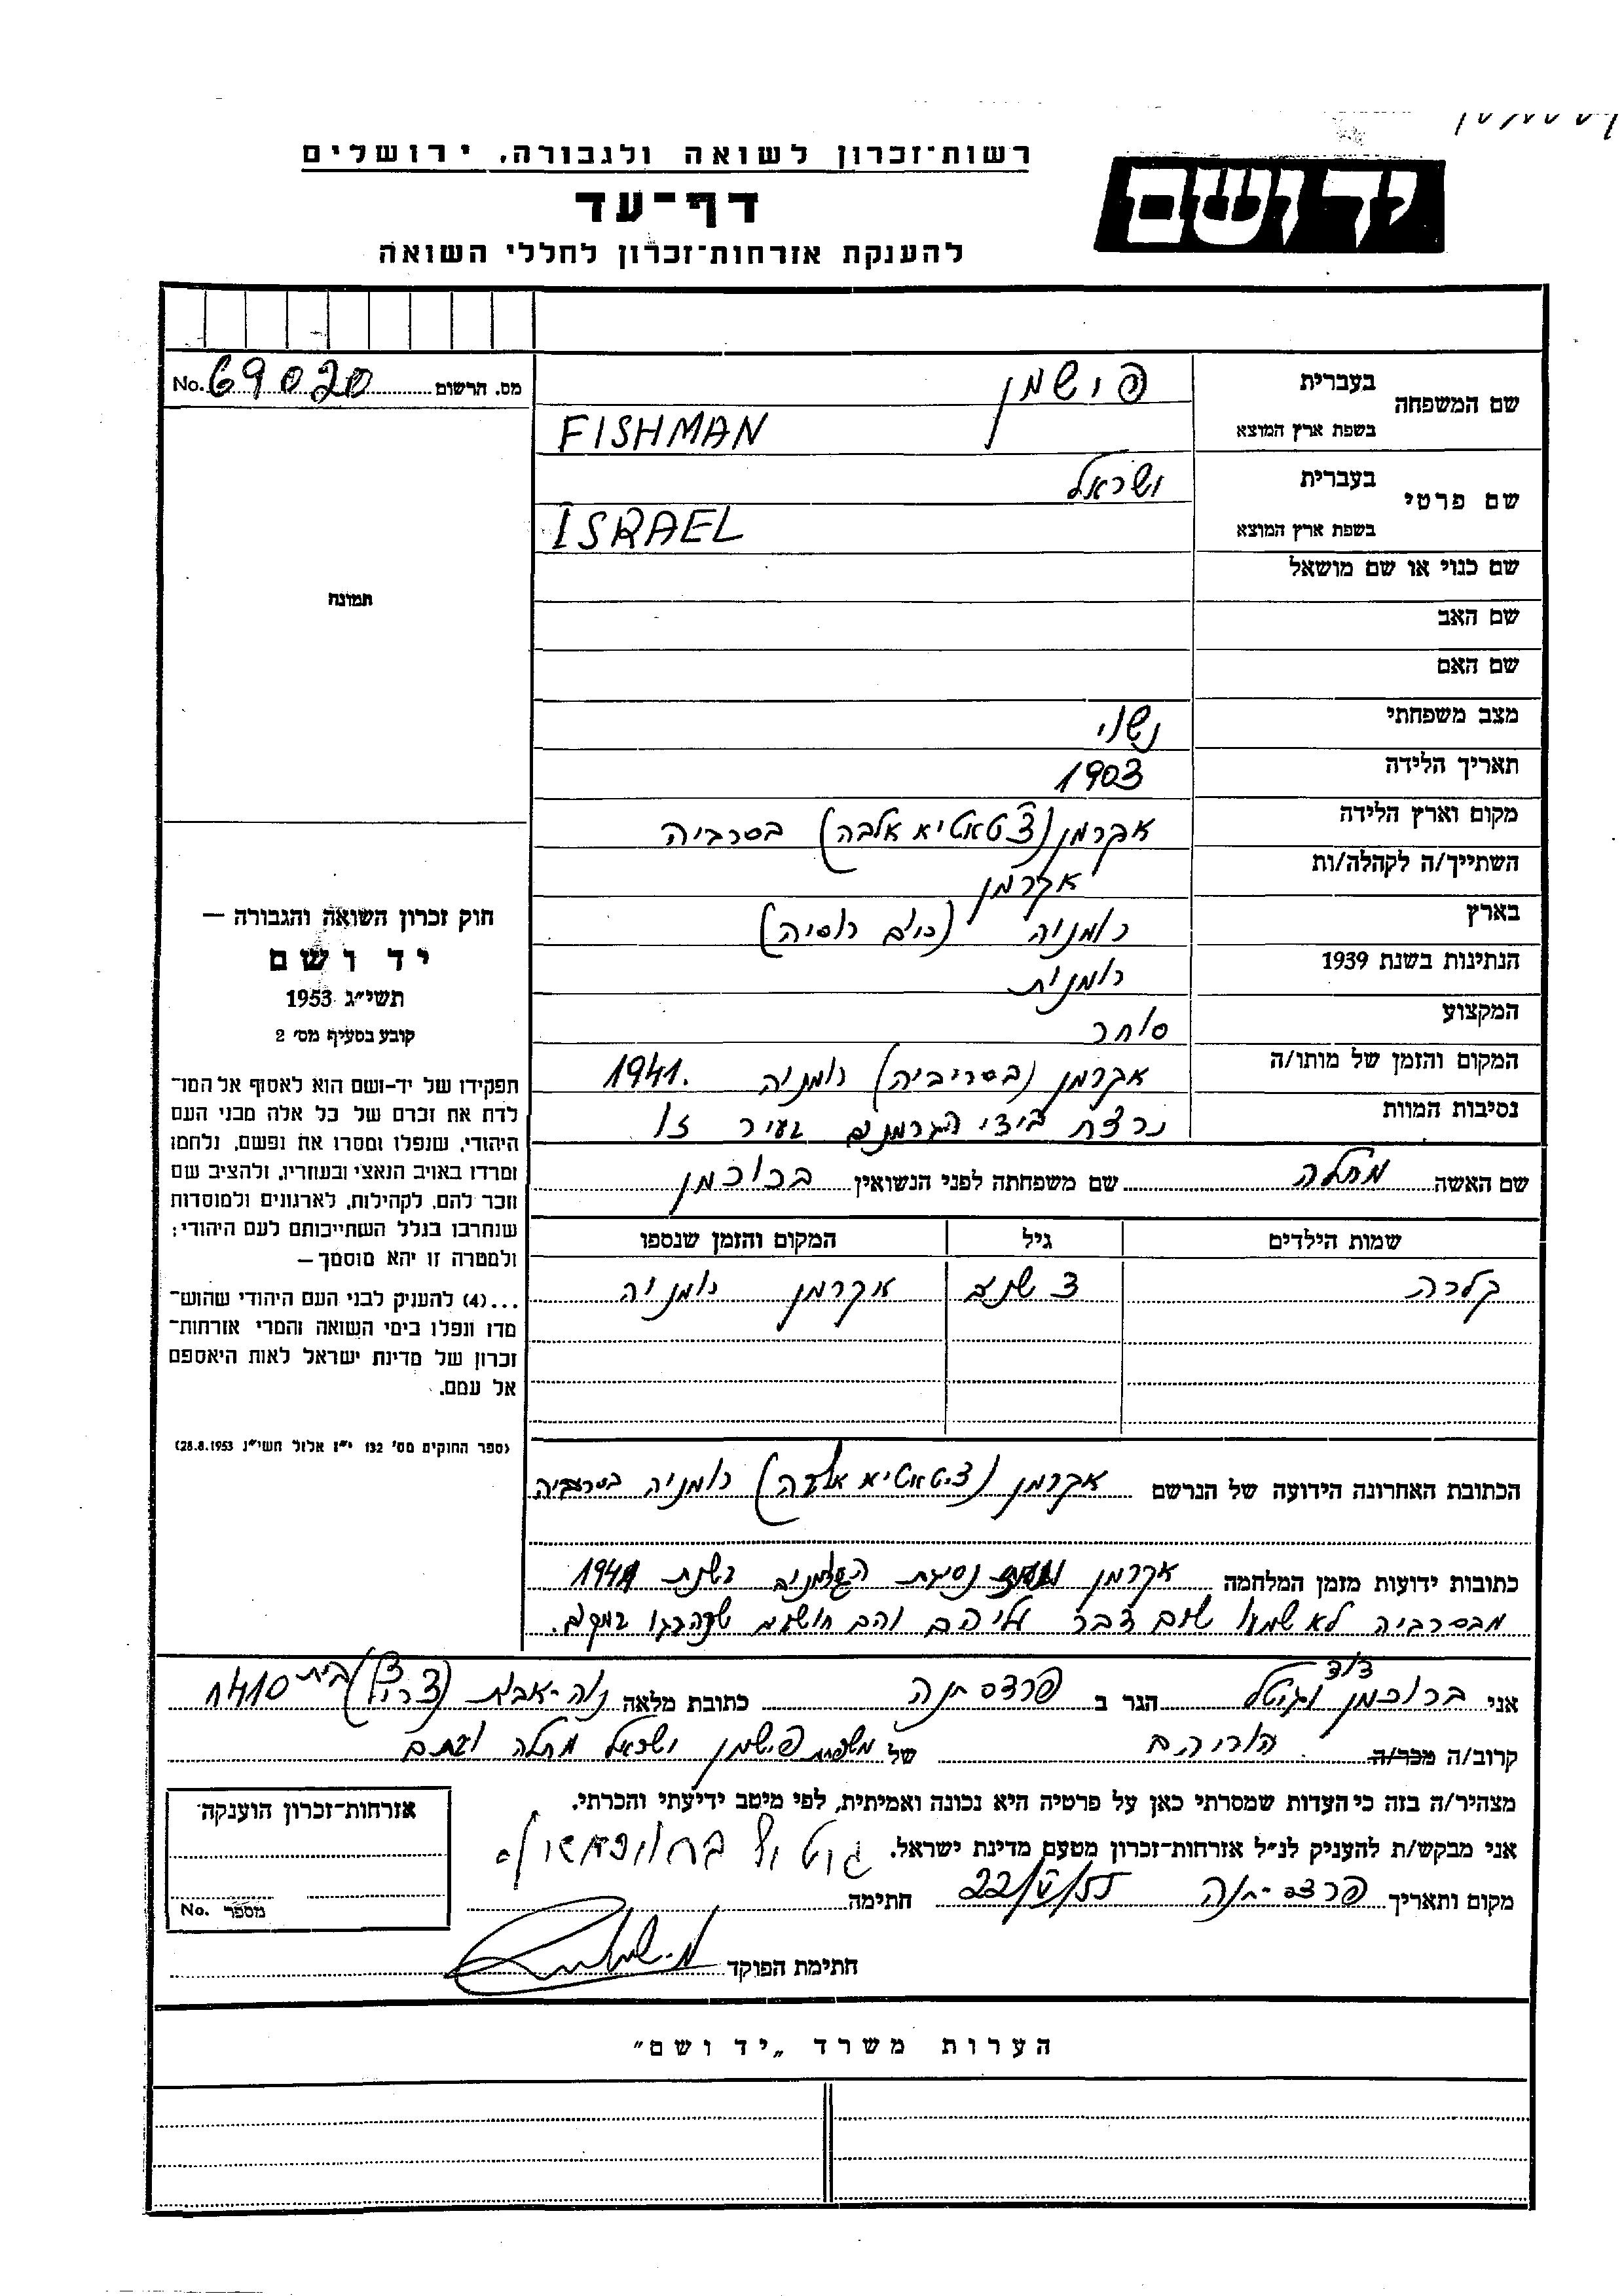 רשות־זכרון לשואה ולגבורה, ירושלים
יד ושם
דף־עד
להענקת אזרחות־זכרון לחללי השואה
מס. הרשום 69020 No.
שם המשפחה
בעברית פישמן
בשפת ארץ המוצא FISHMAN
שם פרטי
בעברית ישראל
בשפת ארץ המוצא ISRAEL
שם כנוי או שם מושאל
שם האב
שם האם
מצב משפחתי נשוי
תאריך הלידה 1903
מקום וארץ הלידה אקרמן (צטאטיא אלבה) בסרביה
השתייך/ה לקהלה/ות אקרמן
בארץ רומניה (כיום רוסיה)
הנתינות בשנת 1939 רומנית
המקצוע סוחר
המקום והזמן של מותו/ה אקרמן (בסריביה) רומניה 1941.
נסיבות המוות נרצח בידי הגרמנים בעיר זו
שם האשה מחלה שם משפחתה לפני הנשואין ברוכמן
שמות הילדים גיל המקום והזמן שנספו
קלרה 3 שנים אקרמן רומניה
הכתובת האחרונה הידועה של הנרשם אקרמן (ציטאטיא אלבה) רומניה בסרביה
כתובות ידועות מזמן המלחמה אקרמן נסיגת בשנת 1941
מבסרביה לא שמעו שום דבר עליהם והם חושבים שנהרגו במקום.
תמונה
חוק זכרון השואה והגבורה —
יד ושם
תשי״ג 1953
קובע בסעיף מס׳ 2
תפקידו של יד-ושם הוא לאסוף אל המו־
לדת את זכרם של כל אלה מבני העם
היהודי, שנפלו ומסרו את נפשם, נלחמו
ומרדו באויב הנאצי ובעוזריו, ולהציב שם
וזכר להם, לקהילות, לארגונים ולמוסדות
שנחרבו בגלל השתייכותם לעם היהודי;
ולמטרה זו יהא מוסמך —
...(4) להעניק לבני העם היהודי שהוש־
מדו ונפלו בימי השואה והמרי אזרחות־
זכרון של מדינת ישראל לאות היאספם
אל עמם.
(ספר החוקים מס׳ 132 י״ז אלול תשי״ג 28.8.1953)
אני ברוכמן דוד וגיטל הגר ב פרדס-חנה כתובת מלאה נוה-אבות (צריף) בית 1410
קרוב/ה מכר/ה הוריהם של משפחת פישמן ישראל מחלה ובתם
מצהיר/ה בזה כי העדות שמסרתי כאן על פרטיה היא נכונה ואמיתית, לפי מיטב ידיעתי והכרתי.
אני מבקש/ת להעניק לנ״ל אזרחות־זכרון מטעם מדינת ישראל.
מקום ותאריך פרדס-חנה 22/V/55 חתימה
חתימת הפוקד
אזרחות־זכרון הוענקה:
מספר No.
הערות משרד „יד ושם״